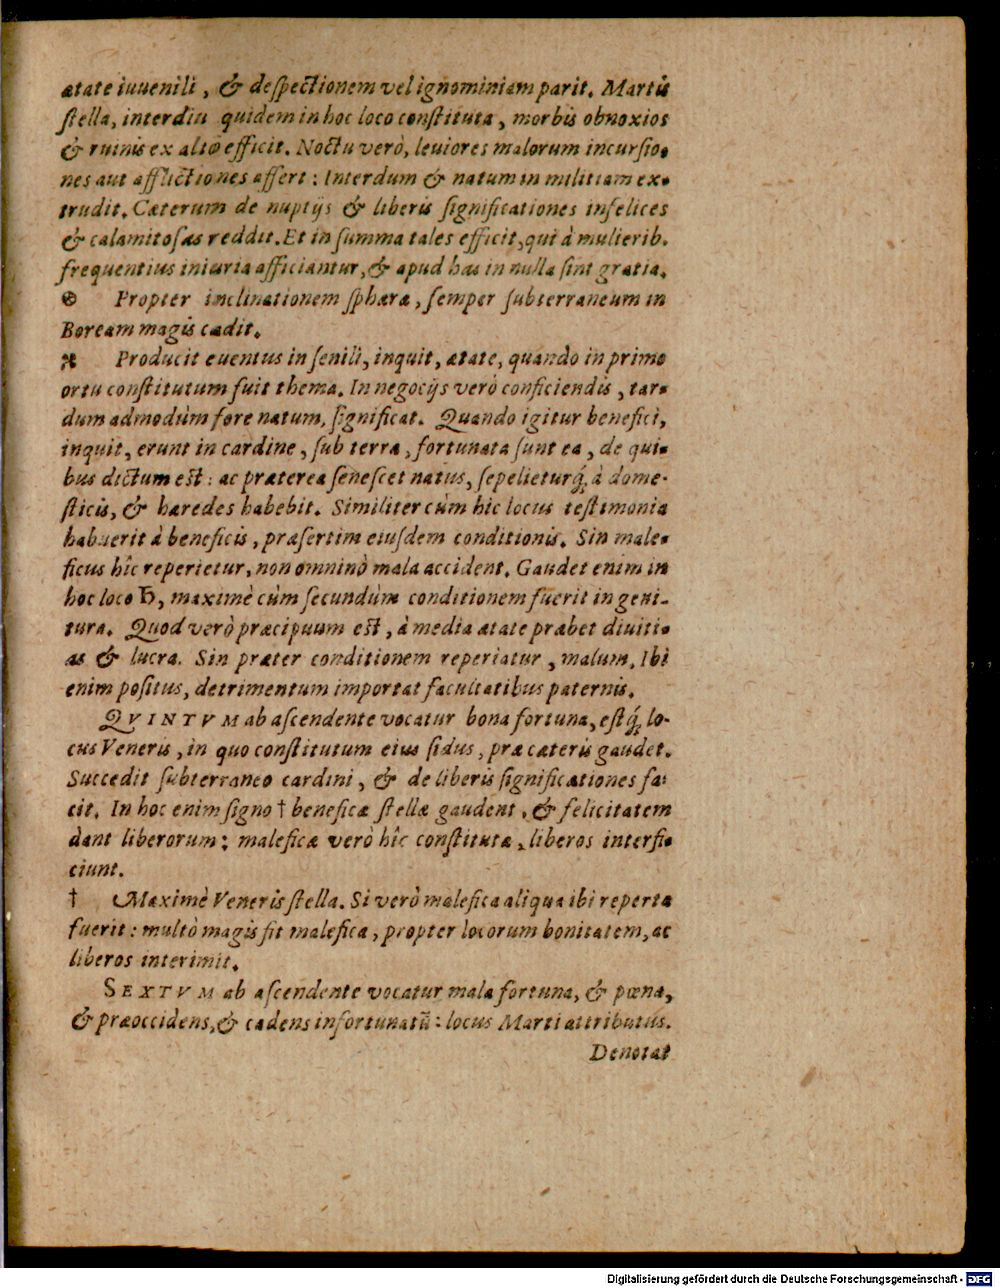 ætate iuuenili, & deſpectionem vel ignominiam parit. Martis
ſtella, interdiu quidem in hoc loco conſtituta, morbis obnoxios
& ruinis ex alto efficit. Noctu verò, leuiores malorum incurſio-
nes aut afflictiones affert: Interdum & natum in militiam ex-
trudit. Cæterum de nuptijs & liberis ſignificationes infelices
& calamitoſas reddit. Et in ſumma tales efficit, qui à mulierib.
frequentius iniuria afficiantur, & apud has in nulla ſint gratia.
⊛ Propter inclinationem ſphæræ, ſemper ſubterraneum in
Boream magis cadit.
※ Producit euentus in ſenili, inquit, ætate, quando in primo
ortu conſtitutum fuit thema. In negocijs verò conficiendis, tar-
dum admodùm fore natum, ſignificat. Quando igitur benefici,
inquit, erunt in cardine, ſub terra, fortunata ſunt ea, de qui-
bus dictum est: ac præterea ſeneſcet natus, ſepelieturq́; à dome-
ſticis, & hæredes habebit. Similiter cùm hic locus teſtimonia
habuerit à beneficis, præſertim eiuſdem conditionis. Sin male-
ficus hîc reperietur, non omninò mala accident. Gaudet enim in
hoc loco ♄, maximè cùm ſecundùm conditionem fuerit in geni-
tura. Quod verò præcipuum est, à media ætate præbet diuiti-
as & lucra. Sin præter conditionem reperiatur, malum. Ibi
enim poſitus, detrimentum importat facultatibus paternis.
QVINTVM ab aſcendente vocatur bona fortuna, eſtq́; lo-
cus Veneris, in quo conſtitutum eius ſidus, præ cæteris gaudet.
Succedit ſubterraneo cardini, & de liberis ſignificationes fa-
cit. In hoc enim ſigno † beneficæ ſtellæ gaudent, & felicitatem
dant liberorum: maleficæ verò hîc conſtitutæ, liberos interfi-
ciunt.
† Maximè Veneris ſtella. Si verò malefica aliqua ibi reperta
fuerit: multò magis fit malefica, propter locorum bonitatem, ac
liberos interimit.
SEXTVM ab aſcendente vocatur mala fortuna, & pœna,
& præoccidens, & cadens infortunatū: locus Marti attributus.
Denotat
Digitalisierung gefördert durch die Deutsche Forschungsgemeinschaft - DFG